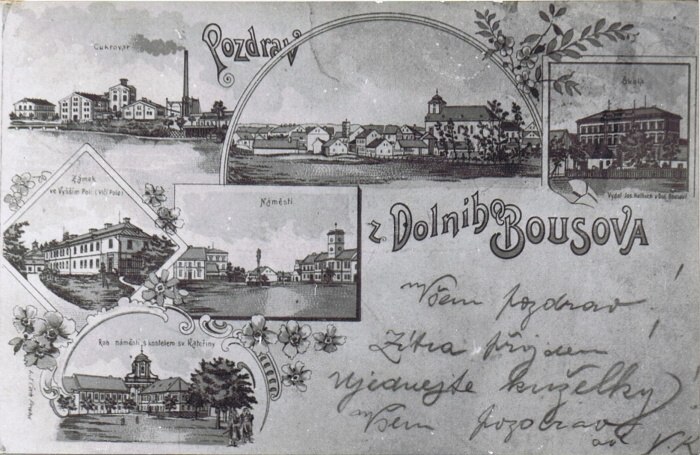 Cukrovar
Pozdrav
Škola
Zámek
ve Vyšším Poli (Vlčí Pole)
Náměstí
z Dolního Bousova
Roh náměstí s kostelem sv. Kateřiny
Všem pozdrav!
Zítra přijdem
Ujednejte kuželky!
Všem pozdrav
od